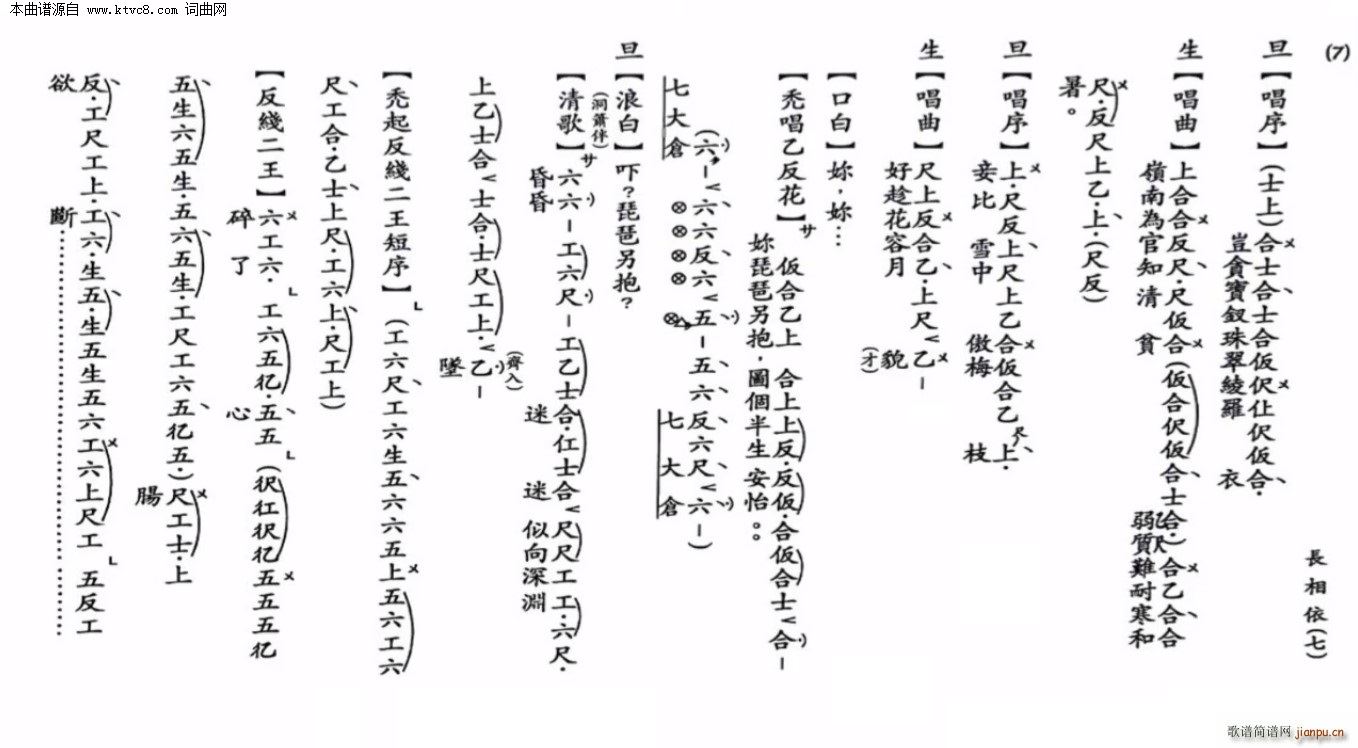 本曲谱源自 www.ktvc8.com 词曲网
(7)
長相依(七)
旦【唱序】(士上)合士合士合仮伬仩伬仮合.
豈貪寶釵珠翠綾羅 衣
生【唱曲】上合合反尺.尺仮合(仮合伬仮合士合.)合乙合合
嶺南為官知清 貧 弱質難耐寒和
尺.反尺上乙.上.(尺反)
暑。
旦【唱序】上.尺反上尺上乙合仮合乙上.
妾比 雪中 傲梅 枝
生【唱曲】尺上反合乙.上尺乙–
好趁花容月 貌(才)
【口白】妳,妳…
【禿唱乙反花】サ 仮合乙上 合上上反.反仮.合仮合士合–
妳琵琶另抱,圖個半生 安怡。。
(六–六六反六五–五六反六尺六–)
七大倉⊗⊗⊗⊗⊗ 七大倉
旦【浪白】吓?琵琶另抱?
【清歌】サ六六–工六尺–工乙士合.仜士合尺尺工工.六尺.
(洞簫伴) 昏昏 迷 迷 似向深淵
上乙士合士合.士尺工上.乙–
墜(齊入)
【禿起反綫二王短序】(工六尺工六生五六六五上五六工六
尺工合.乙士上尺工六上.尺工上)
【反綫二王】六工六.工六五亿.五五(伬仜伬亿五五五亿
碎了 心
五生六五生.五六五生.工尺工六五亿五.)尺工士.上
腸
反.工尺工上.工六.生五.生五生五六工六上尺工 五反工
欲 斷………………………………
歌谱简谱网 jianpu.cn